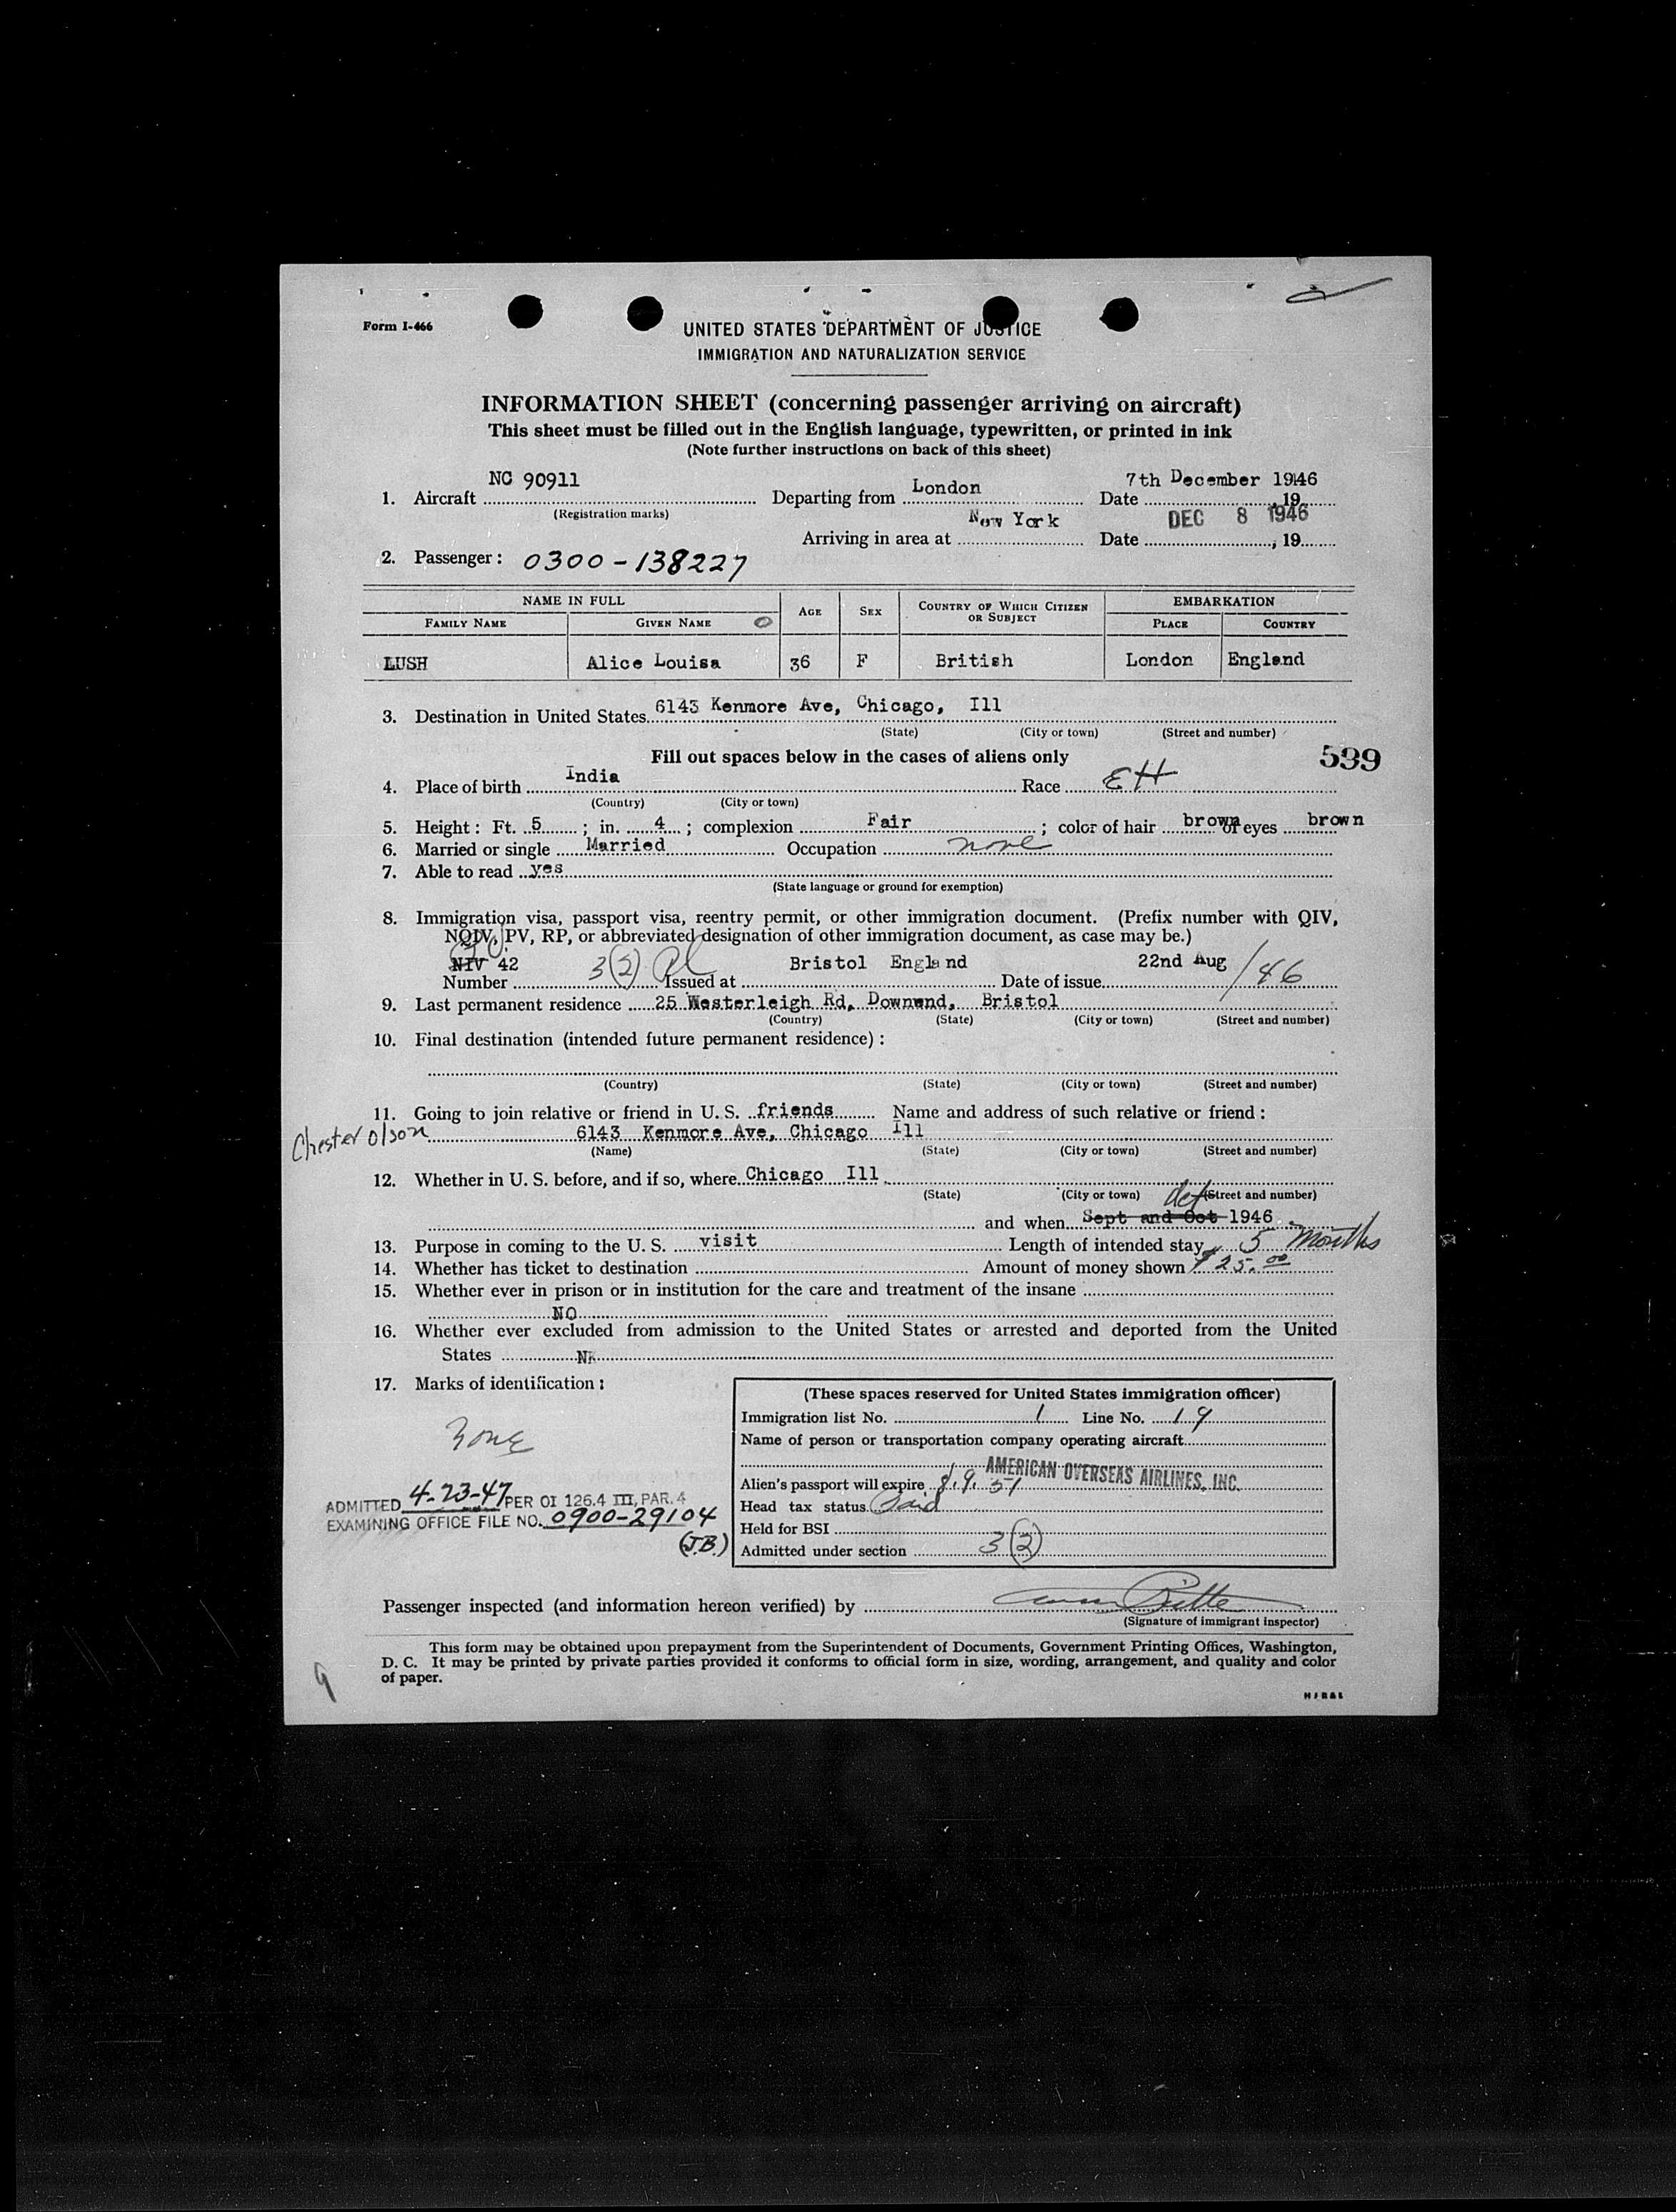 Form I-466
UNITED STATES DEPARTMENT OF JUSTICE
IMMIGRATION AND NATURALIZATION SERVICE
INFORMATION SHEET (concerning passenger arriving on aircraft)
This sheet must be filled out in the English language, typewritten, or printed in ink
(Note further instructions on back of this sheet)
1. Aircraft NC 90911 Departing from London Date 7th December 1946 19
(Registration marks)
Arriving in area at New York Date DEC 8 1946, 19
2. Passenger: 0300-138227
NAME IN FULL AGE SEX COUNTRY OF WHICH CITIZEN OR SUBJECT EMBARKATION
FAMILY NAME GIVEN NAME PLACE COUNTRY
LUSH Alice Louisa 36 F British London England
3. Destination in United States 6143 Kenmore Ave, Chicago, Ill
(State) (City or town) (Street and number)
Fill out spaces below in the cases of aliens only
539
4. Place of birth India Race
(Country) (City or town)
5. Height: Ft. 5; in. 4; complexion Fair; color of hair brown of eyes brown
6. Married or single Married Occupation none
7. Able to read yes
(State language or ground for exemption)
8. Immigration visa, passport visa, reentry permit, or other immigration document. (Prefix number with QIV,
NQIV, PV, RP, or abbreviated designation of other immigration document, as case may be.)
Number NIV 42 3(2) Issued at Bristol England Date of issue 22nd Aug /46
9. Last permanent residence 25 Westerleigh Rd, Downend, Bristol
(Country) (State) (City or town) (Street and number)
10. Final destination (intended future permanent residence):
(Country) (State) (City or town) (Street and number)
11. Going to join relative or friend in U.S. friends Name and address of such relative or friend:
Chester Olson 6143 Kenmore Ave, Chicago Ill
(Name) (State) (City or town) (Street and number)
12. Whether in U.S. before, and if so, where Chicago Ill
(State) (City or town) (Street and number)
and when Sept and Oct 1946
13. Purpose in coming to the U.S. visit Length of intended stay 5 Months
14. Whether has ticket to destination Amount of money shown $25.00
15. Whether ever in prison or in institution for the care and treatment of the insane
NO
16. Whether ever excluded from admission to the United States or arrested and deported from the United
States
17. Marks of identification:
None
ADMITTED 4-23-47 PER OI 126.4 III, PAR. 4
EXAMINING OFFICE FILE NO. 0900-29104
(J.B.)
(These spaces reserved for United States immigration officer)
Immigration list No. 1 Line No. 19
Name of person or transportation company operating aircraft
AMERICAN OVERSEAS AIRLINES, INC.
Alien's passport will expire 8.9.51
Head tax status Paid
Held for BSI
Admitted under section 3(2)
Passenger inspected (and information hereon verified) by
(Signature of immigrant inspector)
This form may be obtained upon prepayment from the Superintendent of Documents, Government Printing Offices, Washington,
D. C. It may be printed by private parties provided it conforms to official form in size, wording, arrangement, and quality and color
of paper.
9